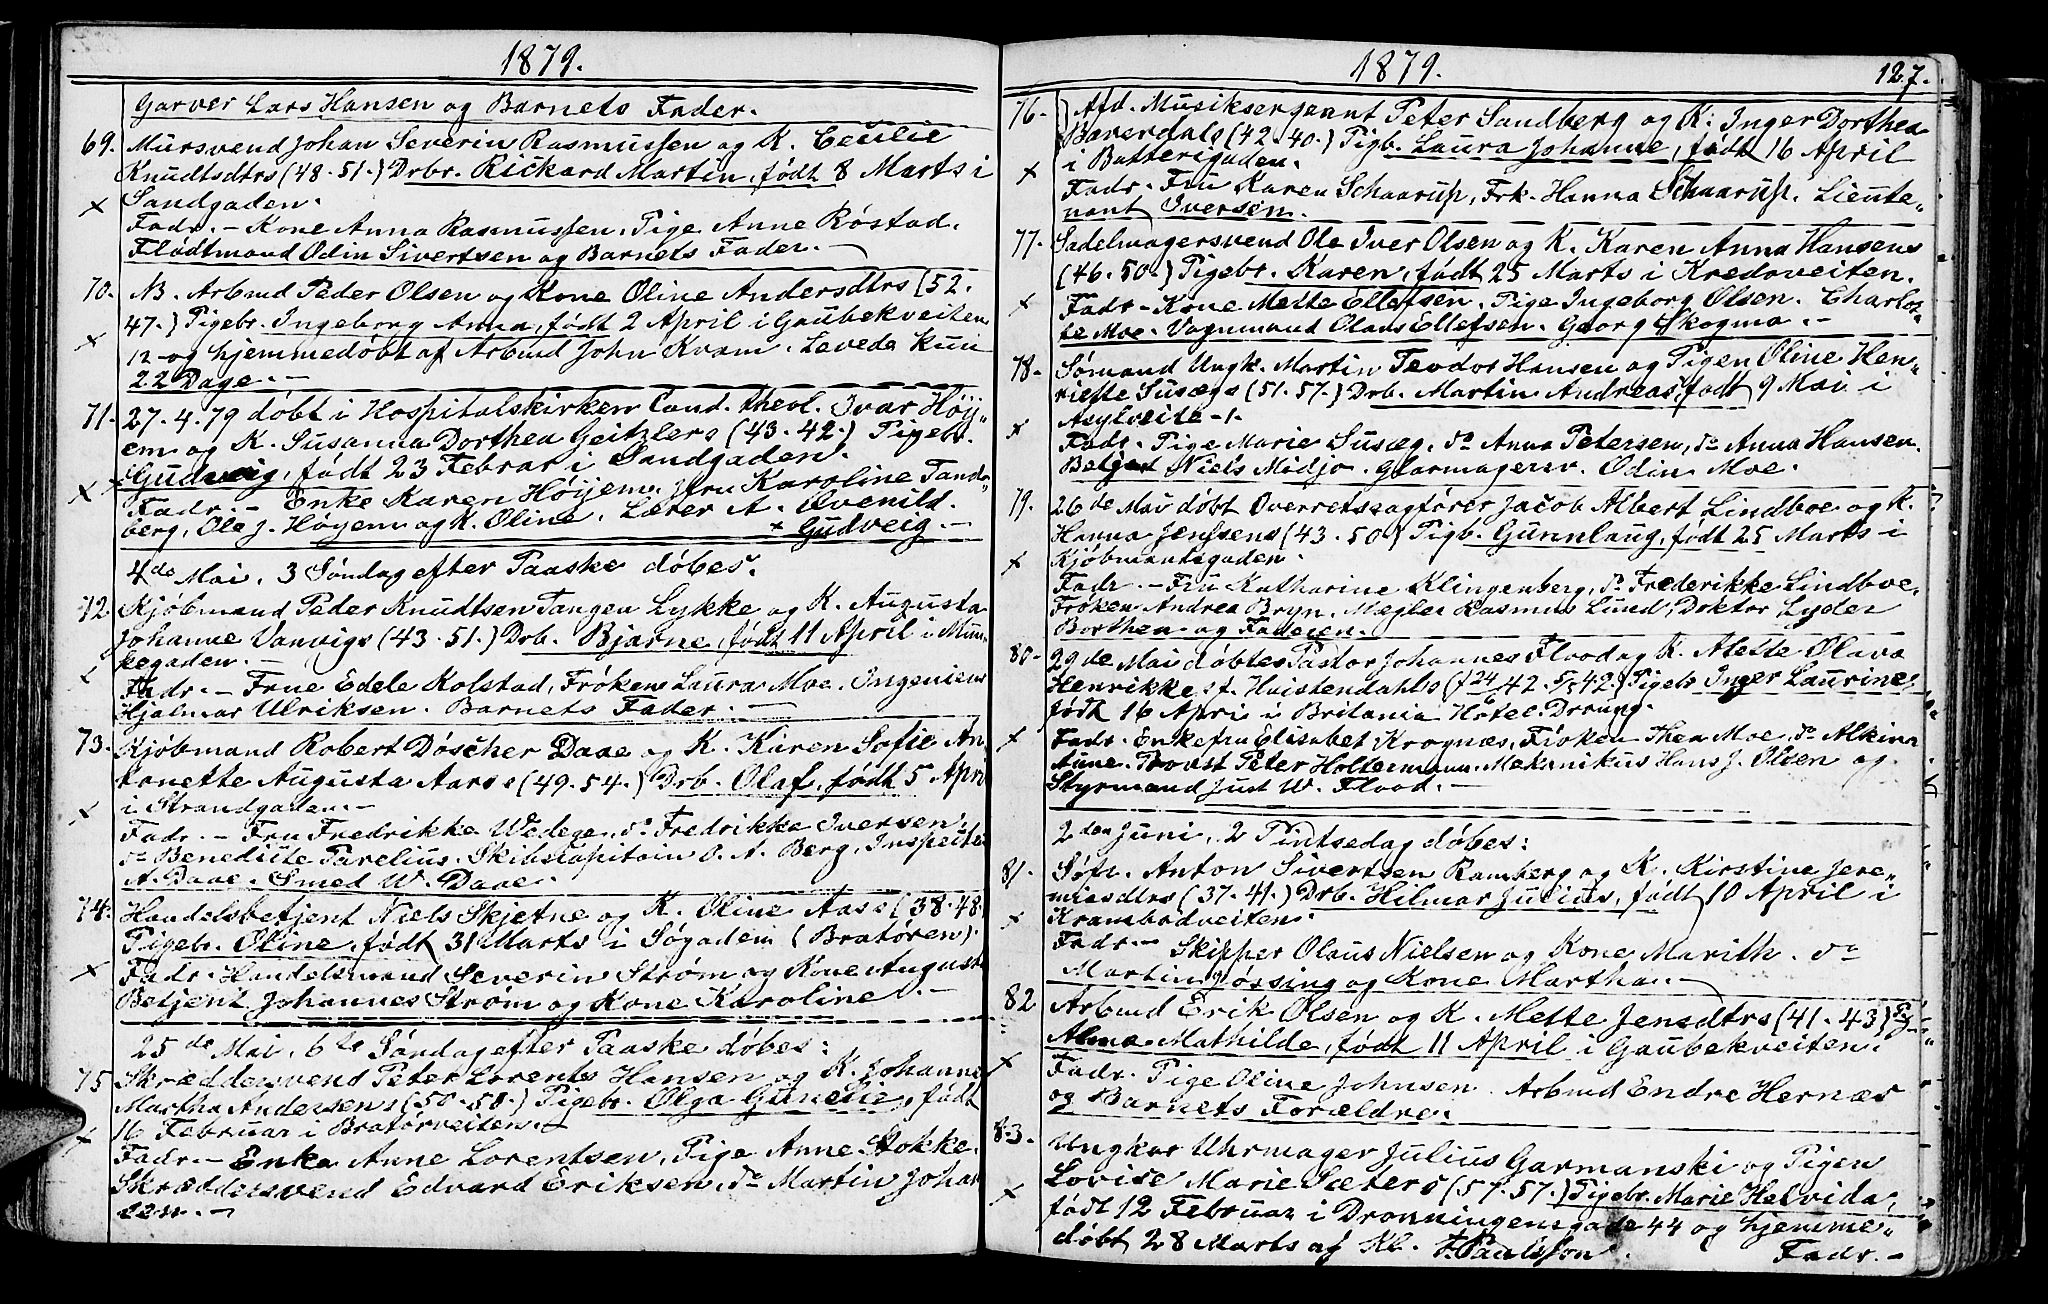 1879.
Garver Lars Hansen og Barnets Fader.
69. Mursvend Johan Severin Rasmussen og K. Cecilie
Knudtsdtrs (48.51.) Drbr. Rickard Martin, født 8 Marts i
Sandgaden.
Fadr. – Kone Anna Rasmussen. Pige Anne Røstad.
Flødtmand Odin Sivertsen og Barnets Fader. –
70. NB. Arbmd Peder Olsen og Kone Oline Andersdtrs (52.
47.) Pigebr. Ingeborg Anna, født 2 April i Gaubekveiten
12 og hjemmedøbt af Arbmd John Kvam. Levede kun
22 Dage. –
71. 27.4.79 døbt i Hospitalskirken Cand. theol. Ivar Høij,,
em og K. Susanna Dorthea Geitzlers (43.42.) Pigebr.
Gudveig, født 23 Februar i Sandgaden.
Fadr. – Enke Karen Høijem, Fru Karoline Tand,,
berg, Ole J. Høyem og K. Oline. Lærer A. Øvenild.
× Gudveig. –
4de Mai, 3 Søndag efter Paaske døbes.
72. Kjøbmand Peder Knudtsen Tangen Lykke og K. Augusta
Johanne Vanvigs (43.51.) Drb. Bjarne, født 11 April i Mun,,
kegaden. –
Fadr. – Frue Edele Kolstad, Frøken Laura Moe. Ingeniør
Hjalmar Ulriksen. Barnets Fader. –
73. Kjøbmand Robert Døscher Daae og K. Karen Sofie An,,
tonette Augusta Aars (49.54.) Drb. Olaf, født 5 April
i Strandgaden. –
Fadr. – Fru Fredrikke Wedege, do Fredrikke Iversen,
do Benedicte Parelius. Skibscapitain O. A. Berg, Inspecteur
A. Daae. Smed W. Daae.
74. Handelsbetjent Niels Skjetne og K. Oline Aas (38.48)
Pigebr. Oline, født 31 Marts i Søgaden (Bratøren).
Fadr. Handelsmand Severin Strøm og Kone Auguste
Betjent Johannes Strøm og Kone Karoline. –
25de Mai, 6te Søndag efter Paaske døbes:
75 Skræddersvend Peter Lorents Hansen og K. Johanne
Martha Andersens (50.50.) Pigebr. Olga Gunelie, født
16 Februar i Bratørveiten.
Fadr. – Enke Anne Lorentsen, Pige Anne Stokke.
Skræddersvend Edvard Eriksen, do Martin Johan
sen. –
1879. 127.
76. Afd. Musiksergeant Peter Sandberg og K. Inger Dorthea
Bæverdals (42.40.) Pigb. Laura Johanne, født 16 April
i Batterigaden.
Fadr. Fru Karen Schaarup, Frk. Hanna Schaarup. Lieute,,
nant Iversen.
77. Sadelmagersvend Ole Iver Olsen og K. Karen Anna Hansens
(46.50.) Pigebr. Karen, født 25 Marts i Kredoveiten.
Fadr – Kone Mette Ellefsen. Pige Ingeborg Olsen. Charlot,,
te Moe. Vognmand Olaus Ellefsen. Georg Skogmo. –
78. Sømand Ungk. Martin Teodor Hansen og Pigen Oline Hen,,
riette Susægs (51.57.) Drb. Martin Andreas, født 9 Mai i
Asylveite – 1.
Fadr. Pige Marie Susæg, do Anna Petersen, do Anna Hansen.
Betjent Niels Midjo. Glarmagersv. Odin Moe.
79. 26de Mai døbt Overretssagfører Jacob Albert Lindboe og K.
Hanna Jenssens (43.50) Pigb. Gunnlaug, født 25 Marts i
Kjøbmandsgaden.
Fadr. – Fru Katharine Klingenberg, do Frederikke Lindboe.
Frøken Andrea Bryn. Mægler Rasmus Lund, Doktor Lyder
Borthen og Faderen.
80 – 29de Mai døbtes Pastor Johannes Flood og K. Mette Olava
Henrikke f. Huistendahls (24/6 42. 5/5 42.) Pigebr Inger Laurine,
født 16 April i Britania Hotel. Dronng.
Fadr. Enkefru Elisabet Krognæs, Frøken Thea Moe, do Alkina
Aune. Provst Peter Holtermann. Mekanikus Hans J. Olsen og
Styrmand Just W. Flood. –
2den Juni, 2 Pintsedag døbes:
81. Søfr. Anton Sivertsen Ramberg og K. Kirstine Jere,,
miasdtrs (37.41.) Drb. Hilmar Julius, født 10 April i
Krambodveiten.
Fadr. – Skipper Olaus Nielsen og Kone Marith. do
Martin Jøssing og Kone Martha. –
82 Arbmd Erik Olsen og K. Mette Jensdtrs (41.43) Pg.
Alma Mathilde, født 11 April i Gaubekveiten.
Fadr. Pige Oline Johnsen. Arbmd Endre Hernæs
og Barnets Forældre.
83. Ungkar Uhrmager Julius Garmanski og Pigen
Lovise Marie Sæters (57.57.) Pigebr. Marie Helvida,
født 12 Februar i Dronningensgade 44 og hjemme,,
døbt 28 Marts af Kl. F. Paulsson. Fadr. –